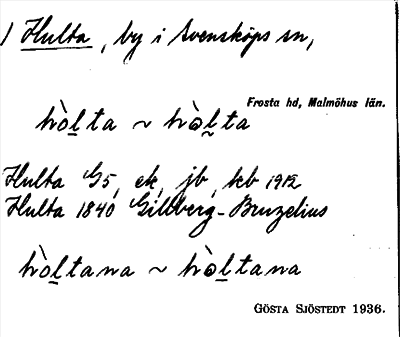 ) Hulta, by i Svensköps sn,
Frosta hd, Malmöhus län.
hòl̲ta ~ hòl̰ta
Hulta G5, ek, jb, kb 1912
Hulta 1840 Gillberg-Bruzelius
hòl̲tana ~ hòl̲tana
GÖSTA SJÖSTEDT 1936.